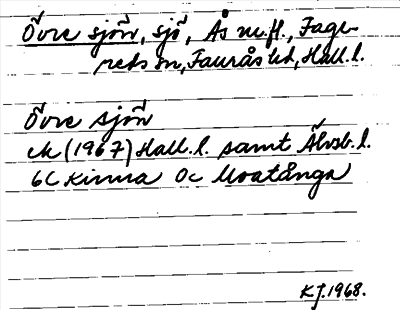 Övre sjön, sjö, Ås m.fl., Fage-
reds sn, Faurås hd, Hall. l.
Övre sjön
ek (1967) Hall. l. samt Älvsb. l.
6C Kinna 0c Moatånga
KJ. 1968.